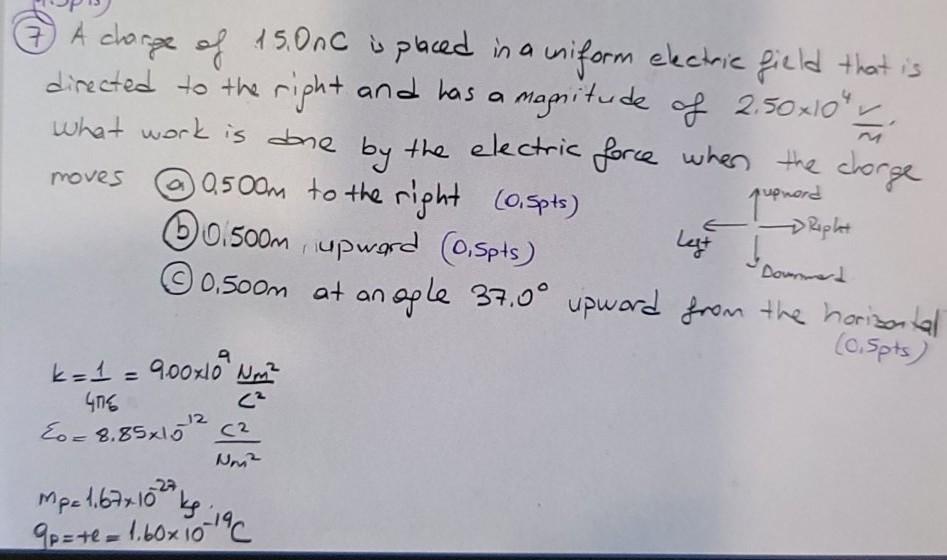 ⑦ A charge of 15.0nC is placed in a uniform electric field that is
directed to the right and has a magnitude of 2.50x10⁴ V/m.
What work is done by the electric force when the charge
moves ⓐ 0.500m to the right (0,5pts)
ⓑ 0.500m, upward (0,5pts)
ⓒ 0.500m at an agle 37.0° upward from the horizontal
(0,5pts)
upward
Left Right
Downward
k = 1/4πε = 9.00x10⁹ Nm²/C²
ε₀ = 8.85x10⁻¹² C²/Nm²
mp = 1.67x10⁻²⁷ kg.
qp = +e = 1.60x10⁻¹⁹C